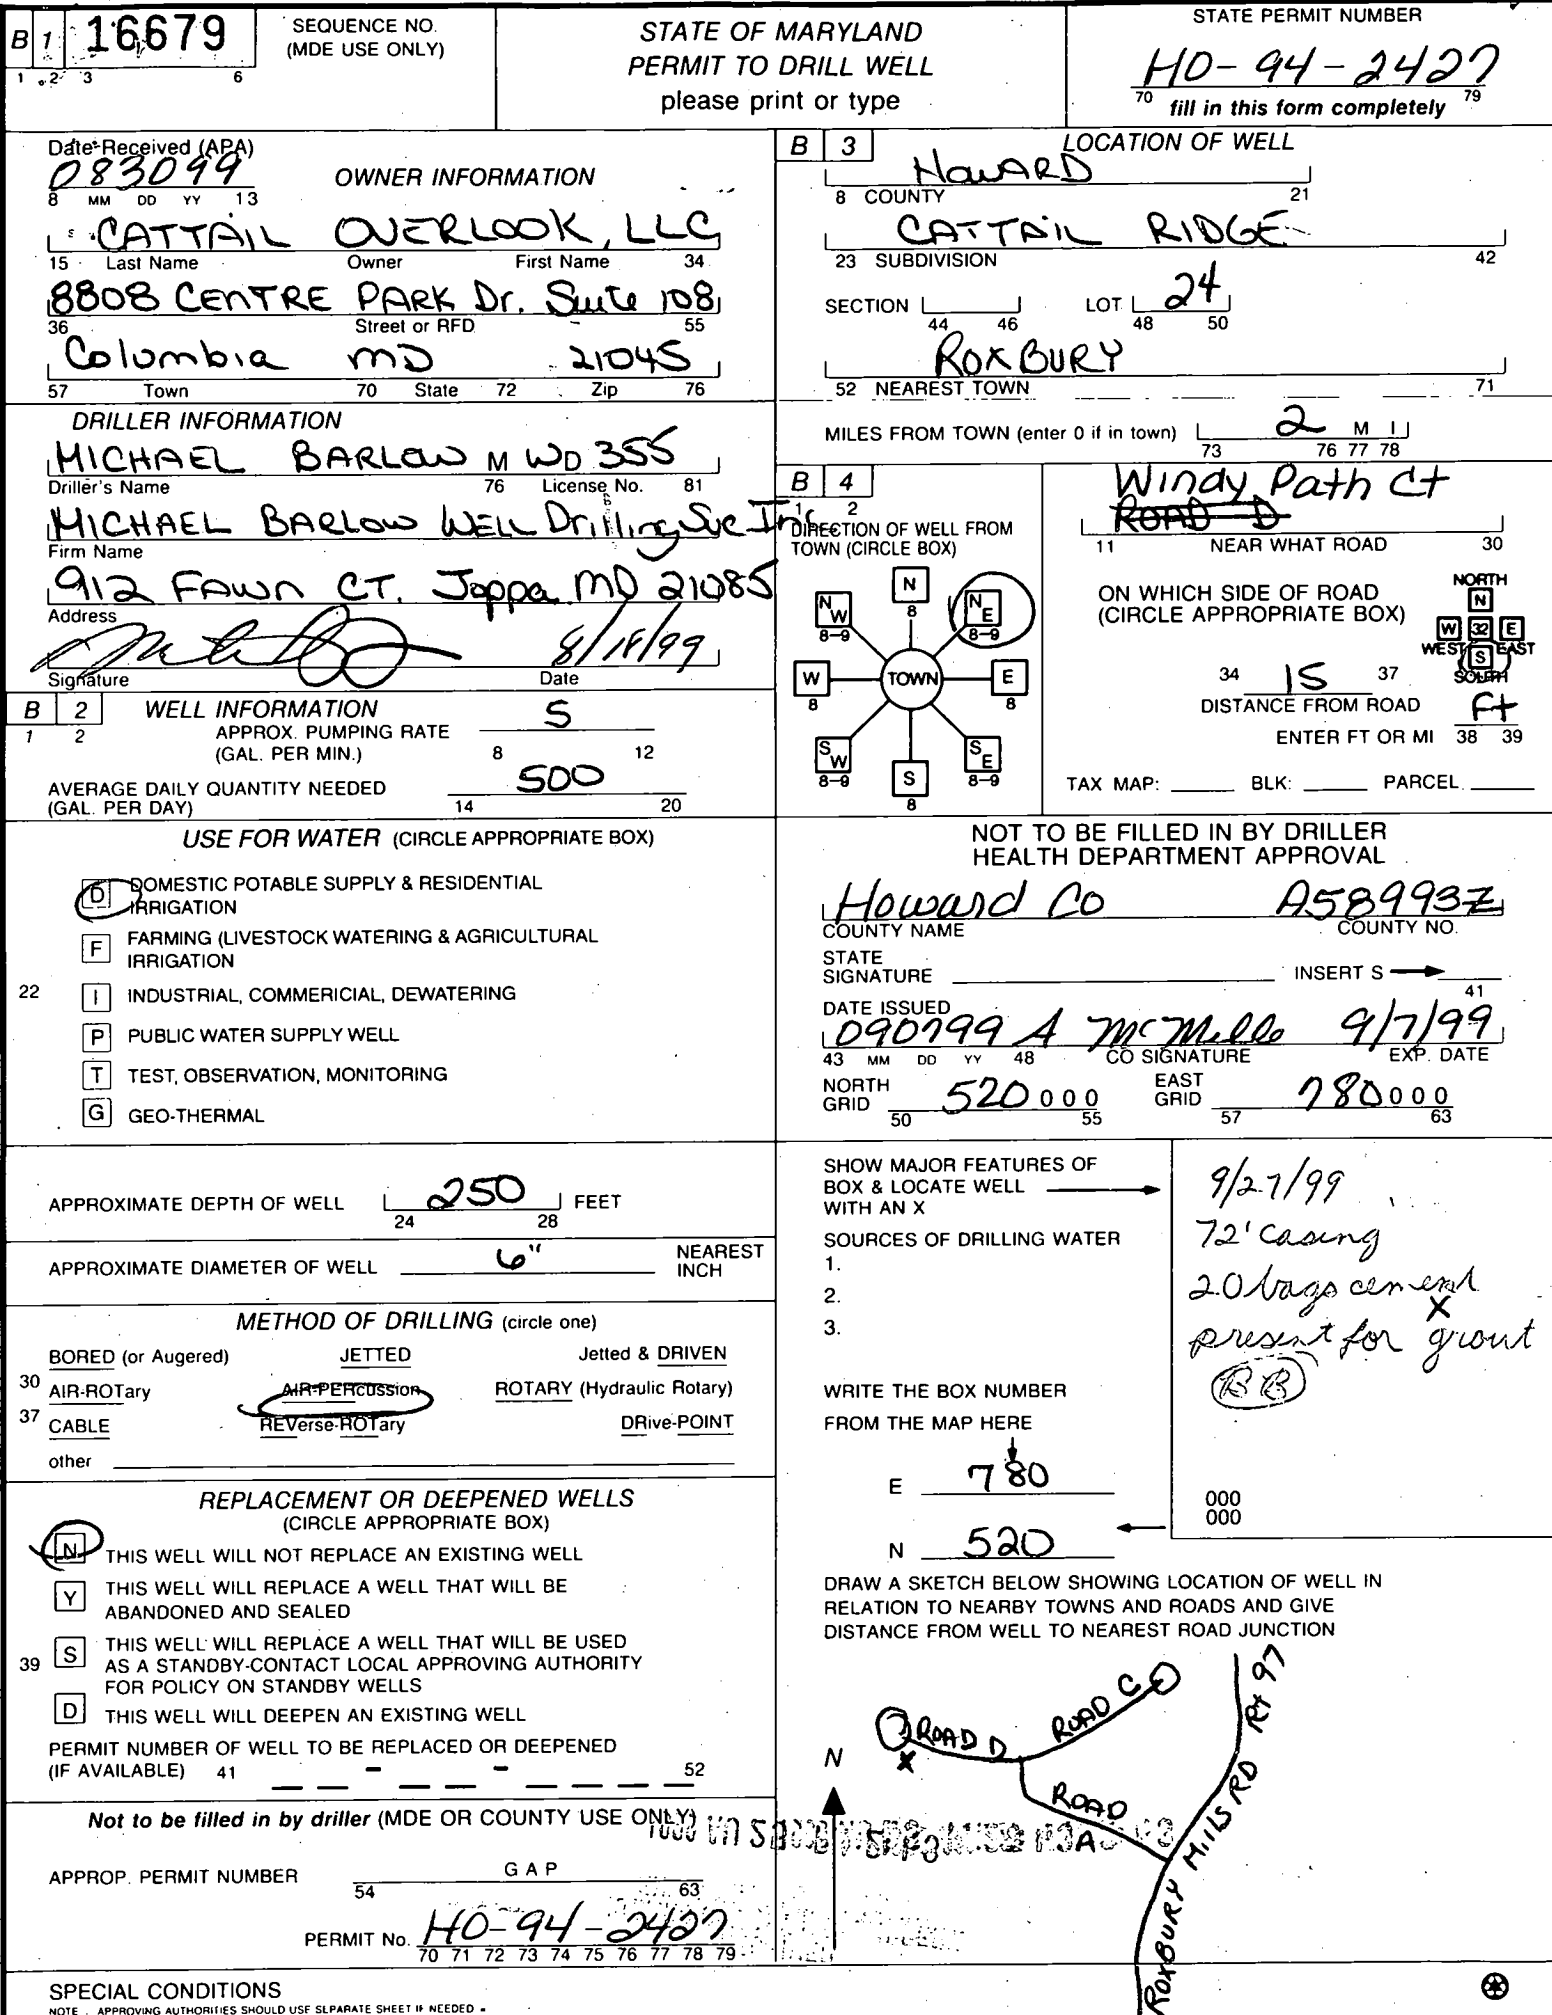 B 1 16679
1 2 3 6
SEQUENCE NO.
(MDE USE ONLY)
STATE OF MARYLAND
PERMIT TO DRILL WELL
please print or type
STATE PERMIT NUMBER
HO-94-2427
70 79
fill in this form completely
Date Received (APA)
083099
8 MM DD YY 13
OWNER INFORMATION
CATTAIL OVERLOOK, LLC
15 Last Name Owner First Name 34
8808 CENTRE PARK Dr. Suite 108
36 Street or RFD 55
Columbia MD 21045
57 Town 70 State 72 Zip 76
DRILLER INFORMATION
MICHAEL BARLOW M WD 355
Driller's Name 76 License No. 81
MICHAEL BARLOW WELL Drilling Svc Inc
Firm Name
912 FAWN CT. Joppa MD 21085
Address
8/18/99
Signature Date
B 2 WELL INFORMATION
1 2
APPROX. PUMPING RATE 5
(GAL. PER MIN.) 8 12
AVERAGE DAILY QUANTITY NEEDED 500
(GAL. PER DAY) 14 20
USE FOR WATER (CIRCLE APPROPRIATE BOX)
D DOMESTIC POTABLE SUPPLY & RESIDENTIAL
IRRIGATION
F FARMING (LIVESTOCK WATERING & AGRICULTURAL
IRRIGATION
22 I INDUSTRIAL, COMMERICIAL, DEWATERING
P PUBLIC WATER SUPPLY WELL
T TEST, OBSERVATION, MONITORING
G GEO-THERMAL
APPROXIMATE DEPTH OF WELL 250 FEET
24 28
APPROXIMATE DIAMETER OF WELL 6" NEAREST
INCH
METHOD OF DRILLING (circle one)
BORED (or Augered) JETTED Jetted & DRIVEN
30 AIR-ROTary AIR-PERcussion ROTARY (Hydraulic Rotary)
37 CABLE REVerse-ROTary DRive-POINT
other
REPLACEMENT OR DEEPENED WELLS
(CIRCLE APPROPRIATE BOX)
N THIS WELL WILL NOT REPLACE AN EXISTING WELL
Y THIS WELL WILL REPLACE A WELL THAT WILL BE
ABANDONED AND SEALED
39 S THIS WELL WILL REPLACE A WELL THAT WILL BE USED
AS A STANDBY-CONTACT LOCAL APPROVING AUTHORITY
FOR POLICY ON STANDBY WELLS
D THIS WELL WILL DEEPEN AN EXISTING WELL
PERMIT NUMBER OF WELL TO BE REPLACED OR DEEPENED
(IF AVAILABLE) 41 - - 52
Not to be filled in by driller (MDE OR COUNTY USE ONLY)
APPROP. PERMIT NUMBER G A P
54 63
PERMIT No. HO-94-2427
70 71 72 73 74 75 76 77 78 79
SPECIAL CONDITIONS
NOTE . APPROVING AUTHORITIES SHOULD USE SEPARATE SHEET IF NEEDED
B 3 LOCATION OF WELL
HOWARD
8 COUNTY 21
CATTAIL RIDGE
23 SUBDIVISION 42
SECTION LOT 24
44 46 48 50
ROXBURY
52 NEAREST TOWN 71
MILES FROM TOWN (enter 0 if in town) 2 M I
73 76 77 78
B 4
1 2
DIRECTION OF WELL FROM
TOWN (CIRCLE BOX)
N 8
NW 8-9
NE 8-9
W 8
TOWN
E 8
SW 8-9
S 8
SE 8-9
Windy Path Ct
ROAD D
11 NEAR WHAT ROAD 30
ON WHICH SIDE OF ROAD
(CIRCLE APPROPRIATE BOX)
NORTH
N
W 32 E
WEST S EAST
SOUTH
34 15 37
DISTANCE FROM ROAD Ft
ENTER FT OR MI 38 39
TAX MAP: BLK: PARCEL
NOT TO BE FILLED IN BY DRILLER
HEALTH DEPARTMENT APPROVAL
Howard Co A58993Z
COUNTY NAME COUNTY NO.
STATE
SIGNATURE INSERT S
41
DATE ISSUED
090799 A McMillo 9/7/99
43 MM DD YY 48 CO SIGNATURE EXP. DATE
NORTH
GRID 520000
50 55
EAST
GRID 780000
57 63
SHOW MAJOR FEATURES OF
BOX & LOCATE WELL
WITH AN X
SOURCES OF DRILLING WATER
1.
2.
3.
9/27/99
72' casing
20 bags cement
X
present for grout
BB
WRITE THE BOX NUMBER
FROM THE MAP HERE
E 780
N 520
000
000
DRAW A SKETCH BELOW SHOWING LOCATION OF WELL IN
RELATION TO NEARBY TOWNS AND ROADS AND GIVE
DISTANCE FROM WELL TO NEAREST ROAD JUNCTION
N
ROAD D
X
ROAD C
ROAD A
ROXBURY MILLS RD Rt 97